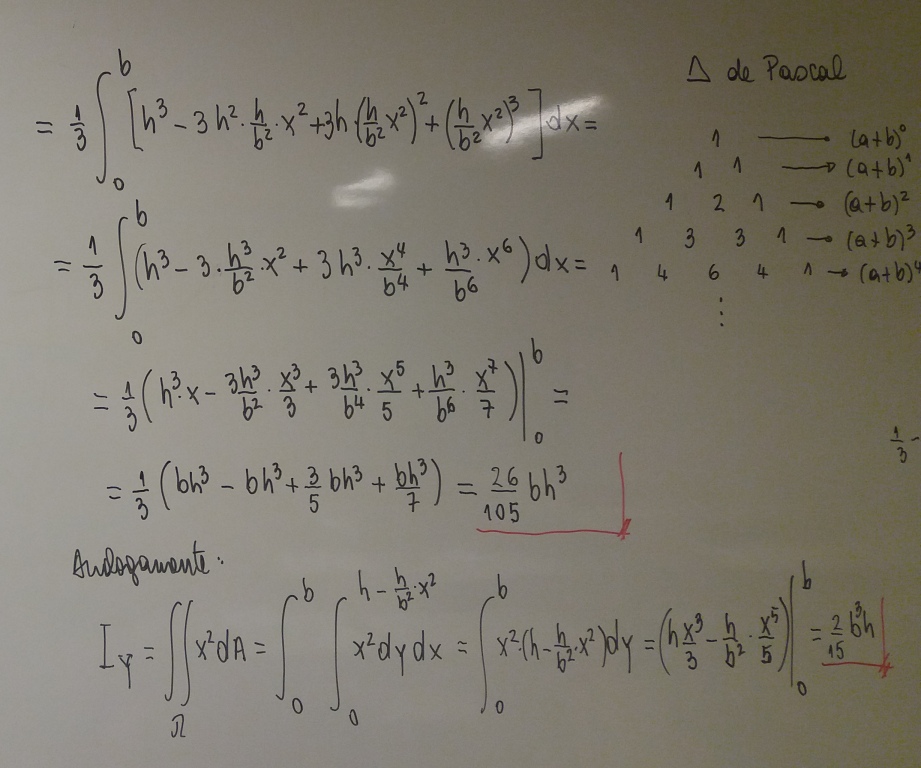 = 1/3 ∫₀ᵇ [h³ - 3h²·h/b²·x² + 3h(h/b² x²)² + (h/b² x²)³] dx =
= 1/3 ∫₀ᵇ (h³ - 3·h³/b²·x² + 3h³·x⁴/b⁴ + h³/b⁶·x⁶) dx =
= 1/3 (h³·x - 3h³/b²·x³/3 + 3h³/b⁴·x⁵/5 + h³/b⁶·x⁷/7) |₀ᵇ =
= 1/3 (bh³ - bh³ + 3/5 bh³ + bh³/7) = 26/105 bh³
Analogamente:
I_Y = ∬_Ω x² dA = ∫₀ᵇ ∫₀^(h - h/b²·x²) x² dy dx = ∫₀ᵇ x²·(h - h/b²·x²) dy = (h x³/3 - h/b²·x⁵/5) |₀ᵇ = 2/15 b³h
Δ de Pascal
1 → (a+b)⁰
1 1 → (a+b)¹
1 2 1 → (a+b)²
1 3 3 1 → (a+b)³
1 4 6 4 1 → (a+b)⁴
⋮
1/3 -